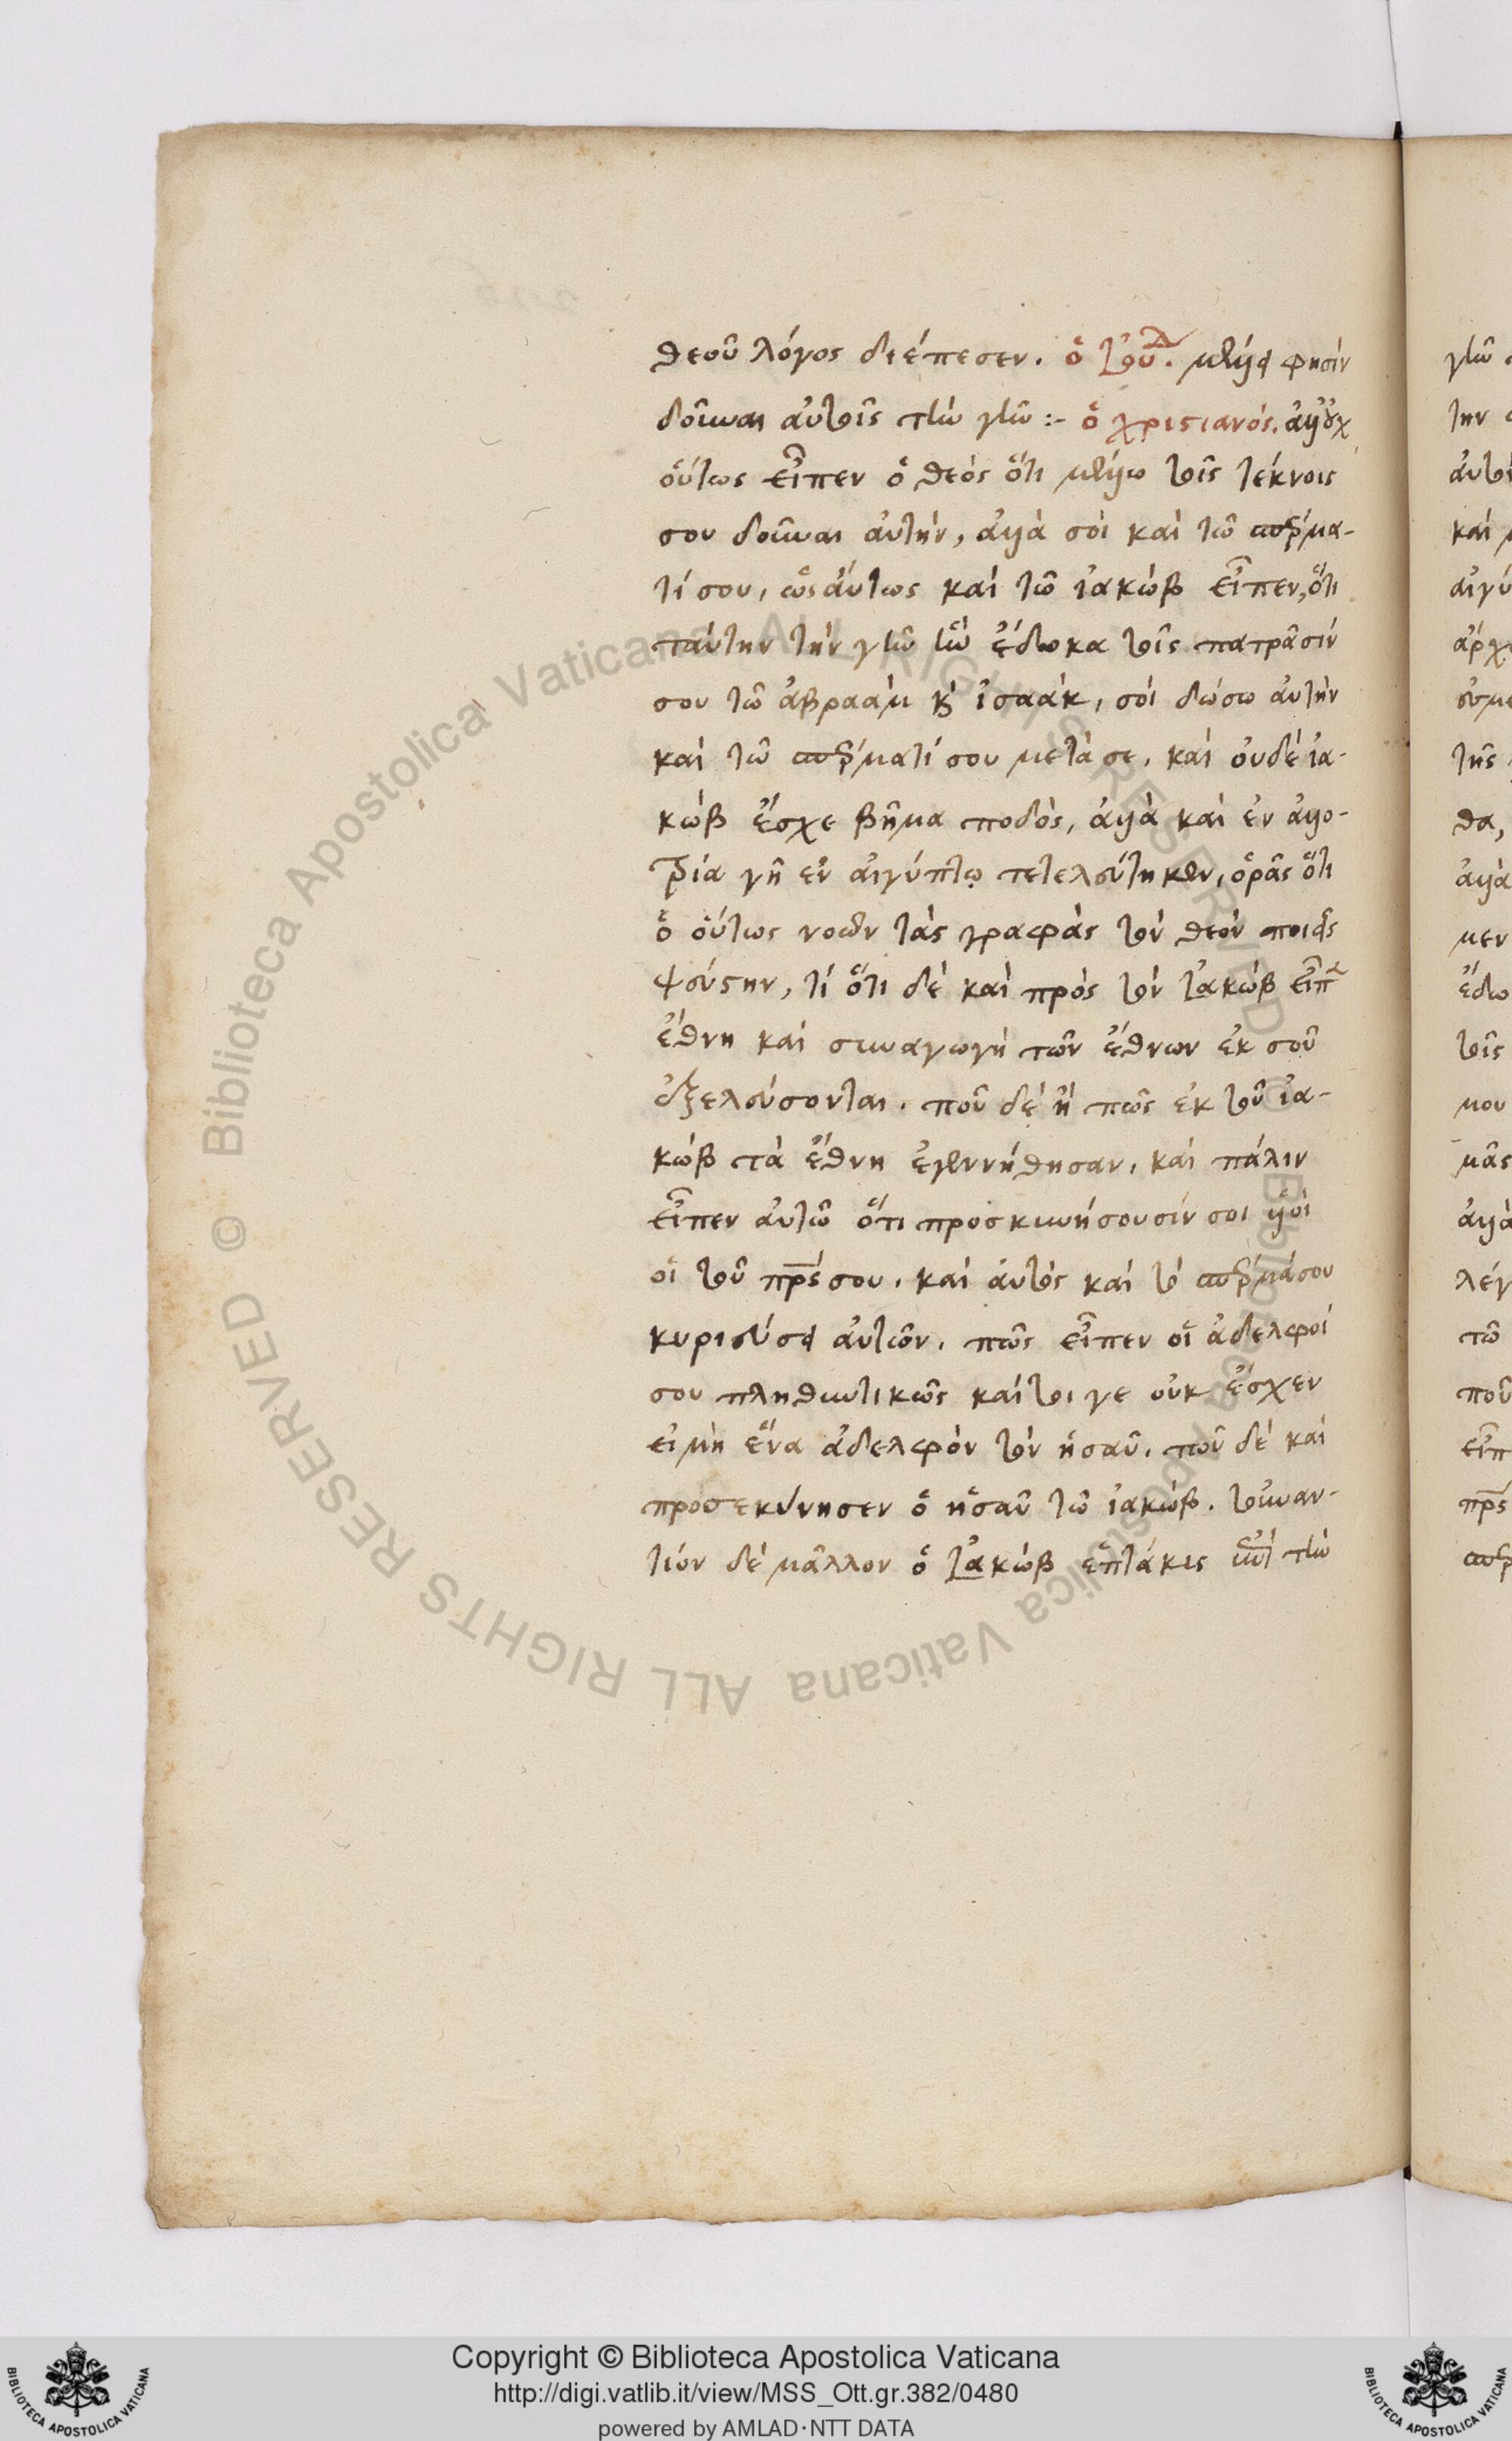 θεοῦ λόγος διέπεσεν. ὁ Ἰουδ. μέλλει φησίν
δοῦναι αὐτοῖς τὴν γῆν :- ὁ χριστιανός. ἀλλ' οὐχ
οὕτως εἶπεν ὁ θεὸς ὅτι μέλλω τοῖς τέκνοις
σου δοῦναι αὐτὴν, ἀλλὰ σοὶ καὶ τῶ σπέρμα-
τί σου, ὡσαύτως καὶ τῶ ἰακὼβ εἶπεν, ὅτι
ταύτην τὴν γῆν ἣν ἔδωκα τοῖς πατράσιν
σου τῶ ἀβραὰμ κ ἰσαάκ, σοὶ δώσω αὐτὴν
καὶ τῶ σπέρματί σου μετὰ σε. καὶ οὐδὲ ἰα-
κὼβ ἔσχε βῆμα ποδὸς, ἀλλὰ καὶ ἐν ἀλλο-
τρία γῆ ἐν αἰγύπτω τετελεύτηκεν, ὁρᾶς ὅτι
ὁ οὕτως νοῶν τὰς γραφὰς τὸν θεὸν ποιεῖς
ψεύστην, τί ὅτι δὲ καὶ πρὸς τὸν Ἰακὼβ εἶπε
ἔθνη καὶ συναγωγὴ τῶν ἔθνων ἐκ σοῦ
ἐξελεύσονται. ποῦ δὲ ἢ πῶς ἐκ τοῦ ἰα-
κὼβ τὰ ἔθνη ἐγεννήθησαν, καὶ πάλιν
εἶπεν αὐτῶ ὅτι προσκυνήσουσίν σοι υἱοὶ
οἱ τοῦ πρς σου. καὶ αὐτὸς καὶ τὸ σπέρμά σου
κυριεύσει αὐτῶν. πῶς εἶπεν οἱ ἀδελφοί
σου πληθυντικῶς καίτοι γε οὐκ ἔσχεν
εἰ μὴ ἕνα ἀδελφὸν τὸν ἠσαῦ. ποῦ δὲ καὶ
προσεκύνησεν ὁ ἡσαῦ τῶ ἰακὼβ. τοὐναν-
τίον δὲ μᾶλλον ὁ Ἰακὼβ ἑπτάκις ἐπὶ τὴν
Copyright © Biblioteca Apostolica Vaticana
http://digi.vatlib.it/view/MSS_Ott.gr.382/0480
powered by AMLAD·NTT DATA